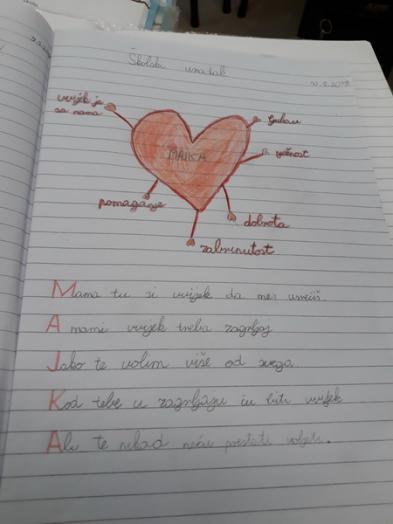 Školski uradak
uvijek je
sa nama
ljubav
MAJKA
nježnost
pomaganje
dobrota
zabrinutost
Mama tu si uvijek da me
A mami uvijek treba zagrljaj
Jako te volim više od svega.
Kod tebe u zagrljaju ću biti uvijek
Al te nikad neću prestati voljeti.